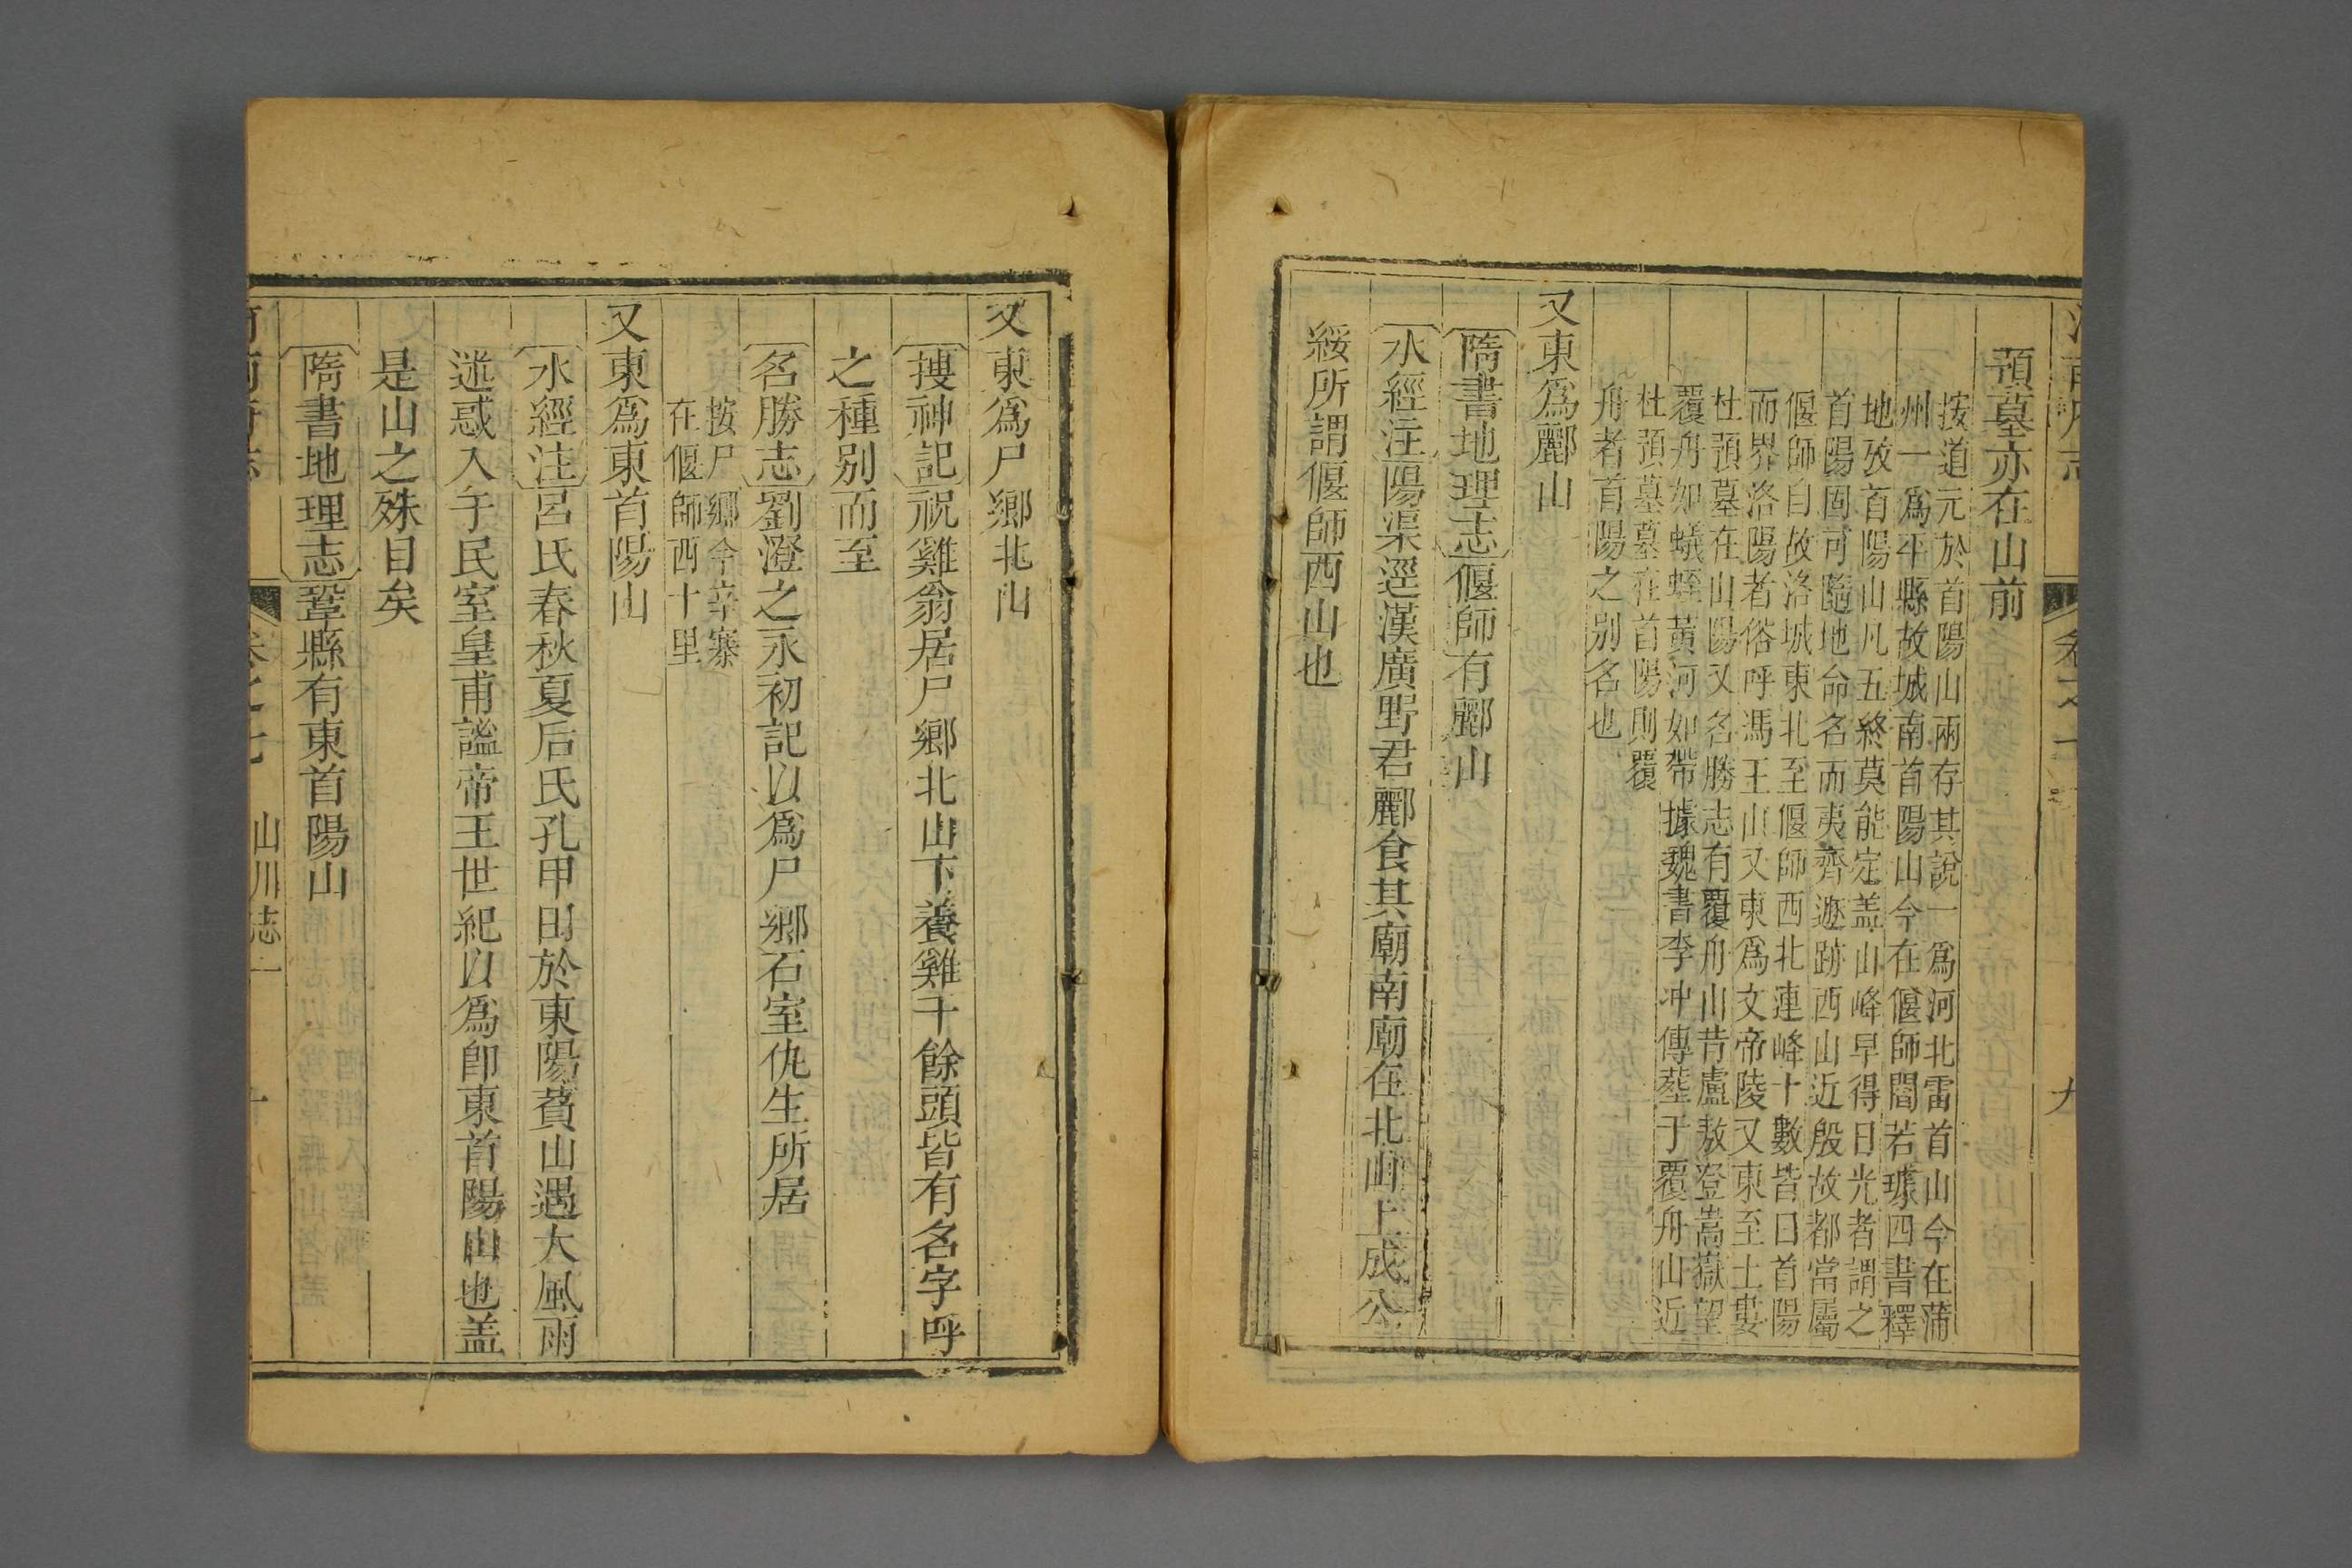 預墓亦在山前
按道元於首陽山兩存其說一爲河北雷首山今在蒲
州一爲平縣故城南首陽山今在偃師閻若璩四書釋
地攷首陽山凡五終莫能定盖山峰早得日光者謂之
首陽固可隨地命名而夷齊遯跡西山近殷故都當屬
偃師自故洛城東北至偃師西北連峰十數皆曰首陽
而界洛陽者俗呼馮王山又東爲文帝陵又東至土婁
杜預墓在山陽又名勝志有覆舟山昔盧敖登嵩嶽望
覆舟如蟻蛭黃河如帶據魏書李冲傳塟于覆舟山近
杜預墓墓在首陽則覆
舟者首陽之别名也
又東爲酈山
隋書地理志偃師有酈山
水經注陽渠逕漢廣野君酈食其廟南廟在北山上成公
綏所謂偃師西山也
又東爲尸鄉北山
搜神記祝雞翁居尸鄉北山下養雞千餘頭皆有名字呼
之種别而至
名勝志劉澄之永初記以爲尸鄉石室仇生所居
按尸鄉今辛寨
在偃師西十里
又東爲東首陽山
水經注呂氏春秋夏后氏孔甲田於東陽萯山遇大風雨
迷惑入于民室皇甫謐帝王世紀以爲卽東首陽山也盖
是山之殊目矣
隋書地理志鞏縣有東首陽山
卷之七 山川志一